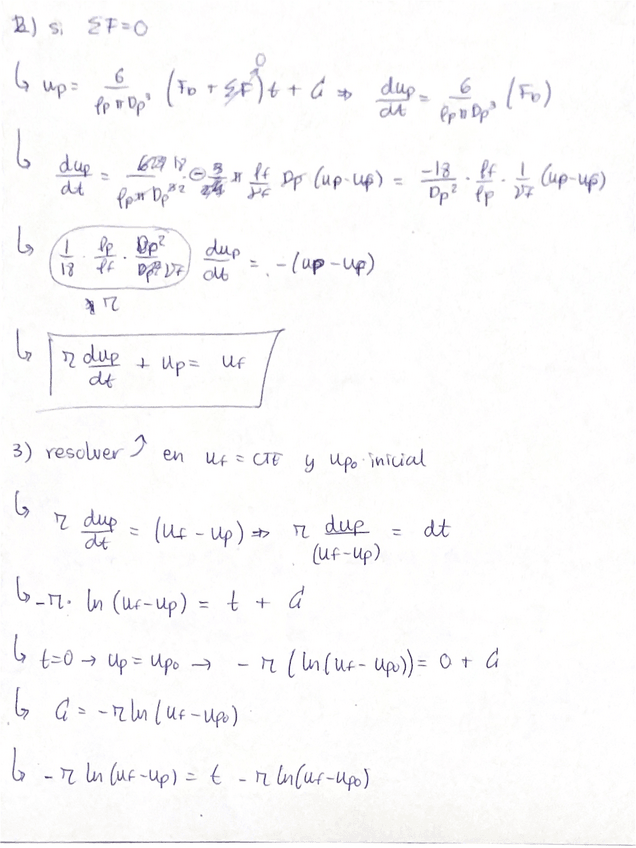 2) si ΣF=0
↳ up = 6/(ρp π Dp³) (FD + ΣF⁰) t + C₁ ⇒ dup/dt = 6/(ρp π Dp³) (FD)
↳ dup/dt = 18/(ρp π Dp²) · ⊖ π ρf/νf Dp (up - uf) = -18/Dp² · ρf/ρp · 1/νf (up - up)
↳ 1/18 · ρp/ρf · Dp²/νf dup/dt = . -(up - up)
τ
↳ τ dup/dt + up = uf
3) resolver ↗ en uf = CTE y up0 inicial
↳ τ dup/dt = (uf - up) ⇒ τ dup/(uf - up) = dt
↳ -τ · ln(uf - up) = t + C₁
↳ t=0 → up = up0 → - τ (ln(uf - up0)) = 0 + C₁
↳ C₁ = -τ ln(uf - up0)
↳ - τ ln(uf - up) = t - τ ln(uf - up0)